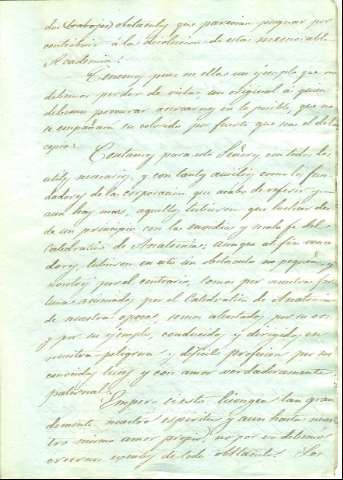 dos trabajos y obstaculos que parecian pugnar por
contribuir á la disolucion de esta memorable
Academia.
Tenemos pues en ella un ejemplo que no
debemos perder de vista, un original á quien
debemos procurar acercarnos en lo posible, que no
se empañara su colorido por fuerte que sea el de la
copia.
Contamos para esto Señores, con todos los
utiles necesarios, y con tantos auxilios como los fun-
dadores de la corporacion que acabo de referir y
aun hay mas, aquellos tubieron que luchar des-
de un principio con la envidia y mala fé del
Catedratico de Anatomia; aunque al fin
tubieron en esto un obstaculo no pequeño, y
nosotros por el contrario, somos por nuestra for-
tuna acunados por el Catedratico de Anatomia
de nuestra epoca, somos alentados por su voz
y por su ejemplo, conducidos y dirigidos en
nuestra peligrosa y dificil profesion por sus
conocidas luces y con amor verdaderamente
paternal.
Empero si esto lisongea tan gran
demente nuestro espiritu y aun hasta nues-
tro mismo amor propio, no por eso debemos
creernos esentos de todo obstaculo. Los